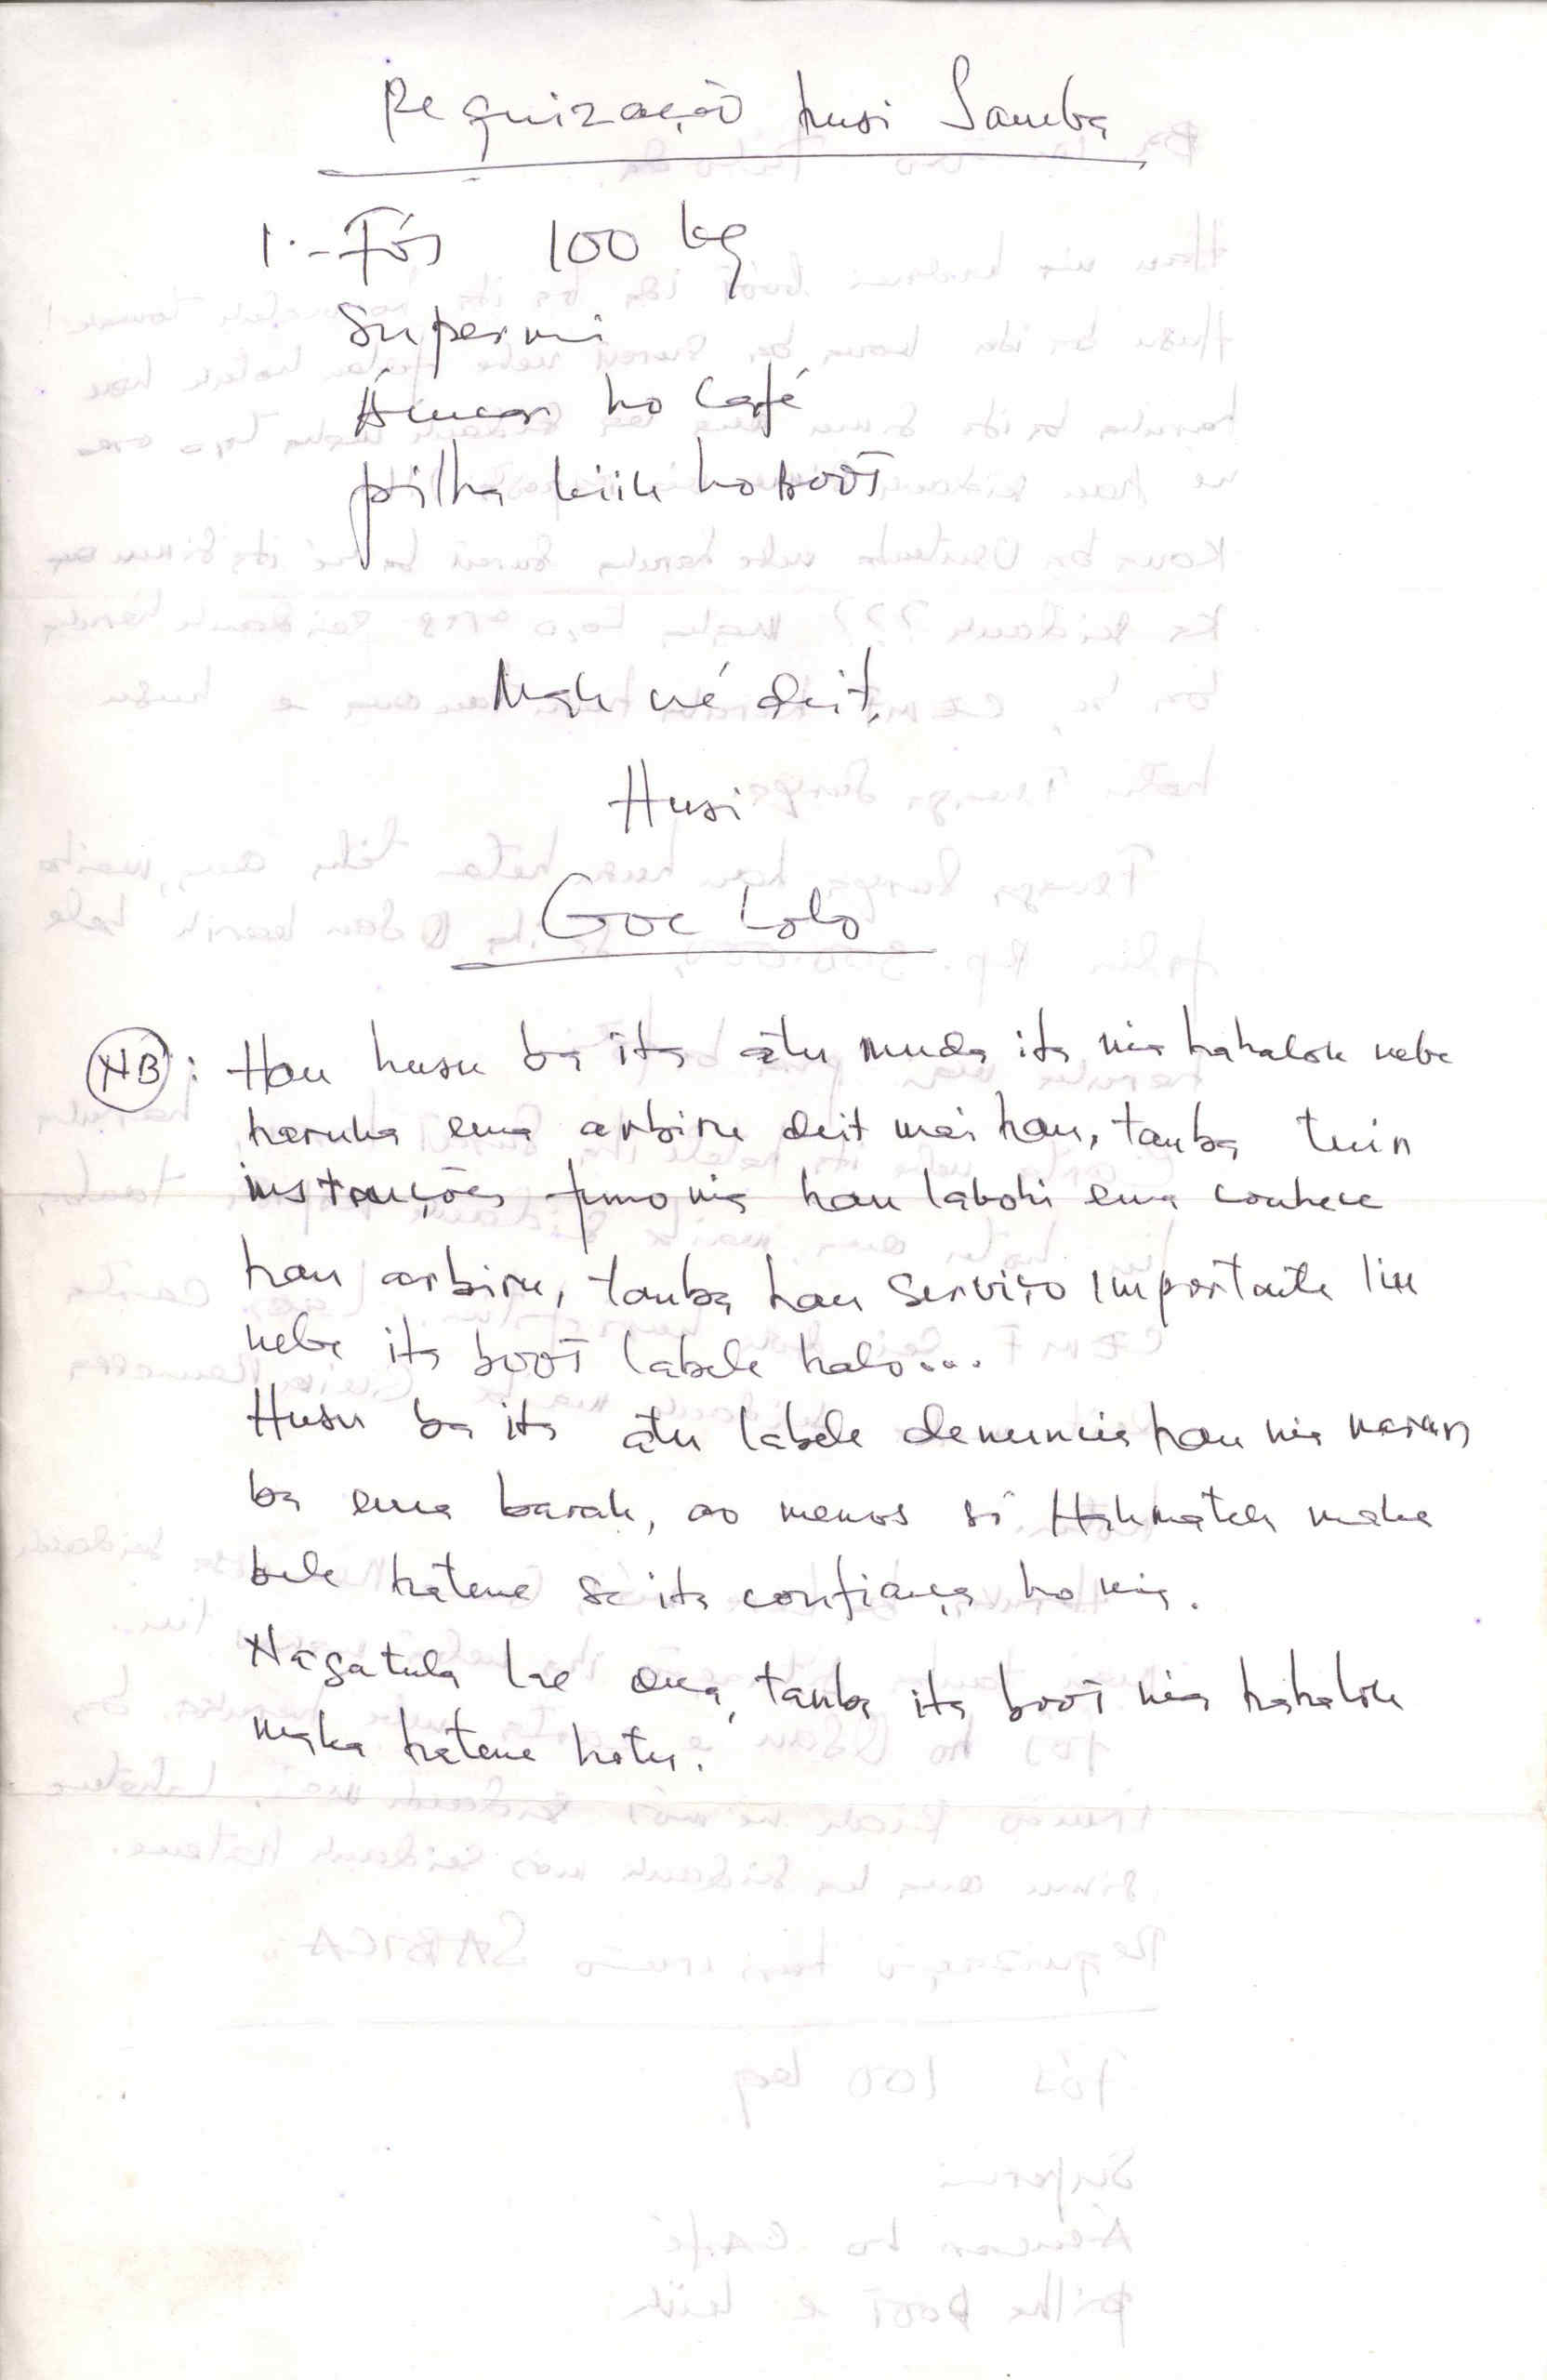 Requização husi Samba
1.- Fós 100 kg
Supermi
Áçucar ho Café
pilha kiik ho boot
Mak né deit,
Husi
Goe Lolo
NB: Hau husu ba ita atu muda ita nia hahalok nebe
haruka ema arbiru deit mai hau, tanba tuir
instruções fumo nia hau lakohi ema conhece
hau arbiru, tanba hau serviço importante liu
nebe ita boot labele halo...
Husu ba ita atu labele denuncia hau nia naran
ba ema barak, ao menos si Hakmatek maka
bele hatene se ita confiança ho nia.
Nagatula lae dua, tanba ita boot nia hahalok
maka hatene hotu.